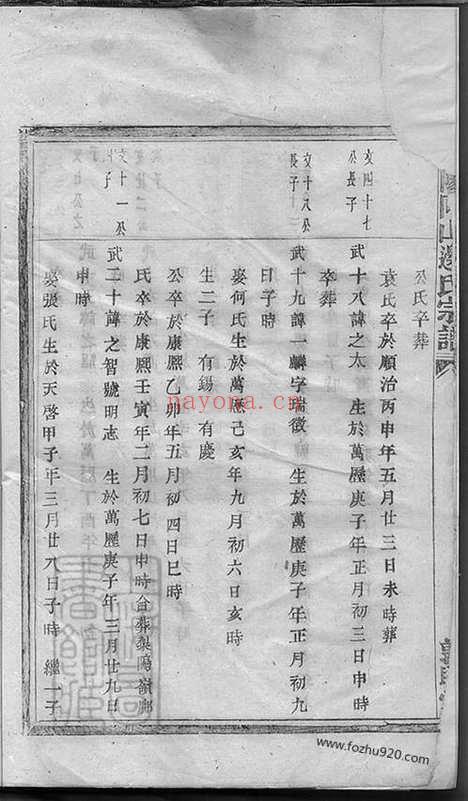 公氏卒葬
袁氏卒於順治丙申年五月廿三日未時葬
文四十七公長子
武十八諱之太 生於萬歷庚子年正月初三日申時
卒葬
文十八公長子
武十九諱一麟字瑞徵 生於萬歷庚子年正月初九
日子時
娶何氏生於萬歷己亥年九月初六日亥時
生二子 有錫 有慶
公卒於康熙乙卯年五月初四日巳時
氏卒於康熙壬寅年二月初七日申時合葬製陶嶺廊
文十一公 子
武二十諱之智號明志 生於萬歷庚子年三月廿九日
申時
娶張氏生於天啓甲子年三月廿八日子時 繼一子
山邊氏宗譜
nayona.cn
www.fozhu920.com